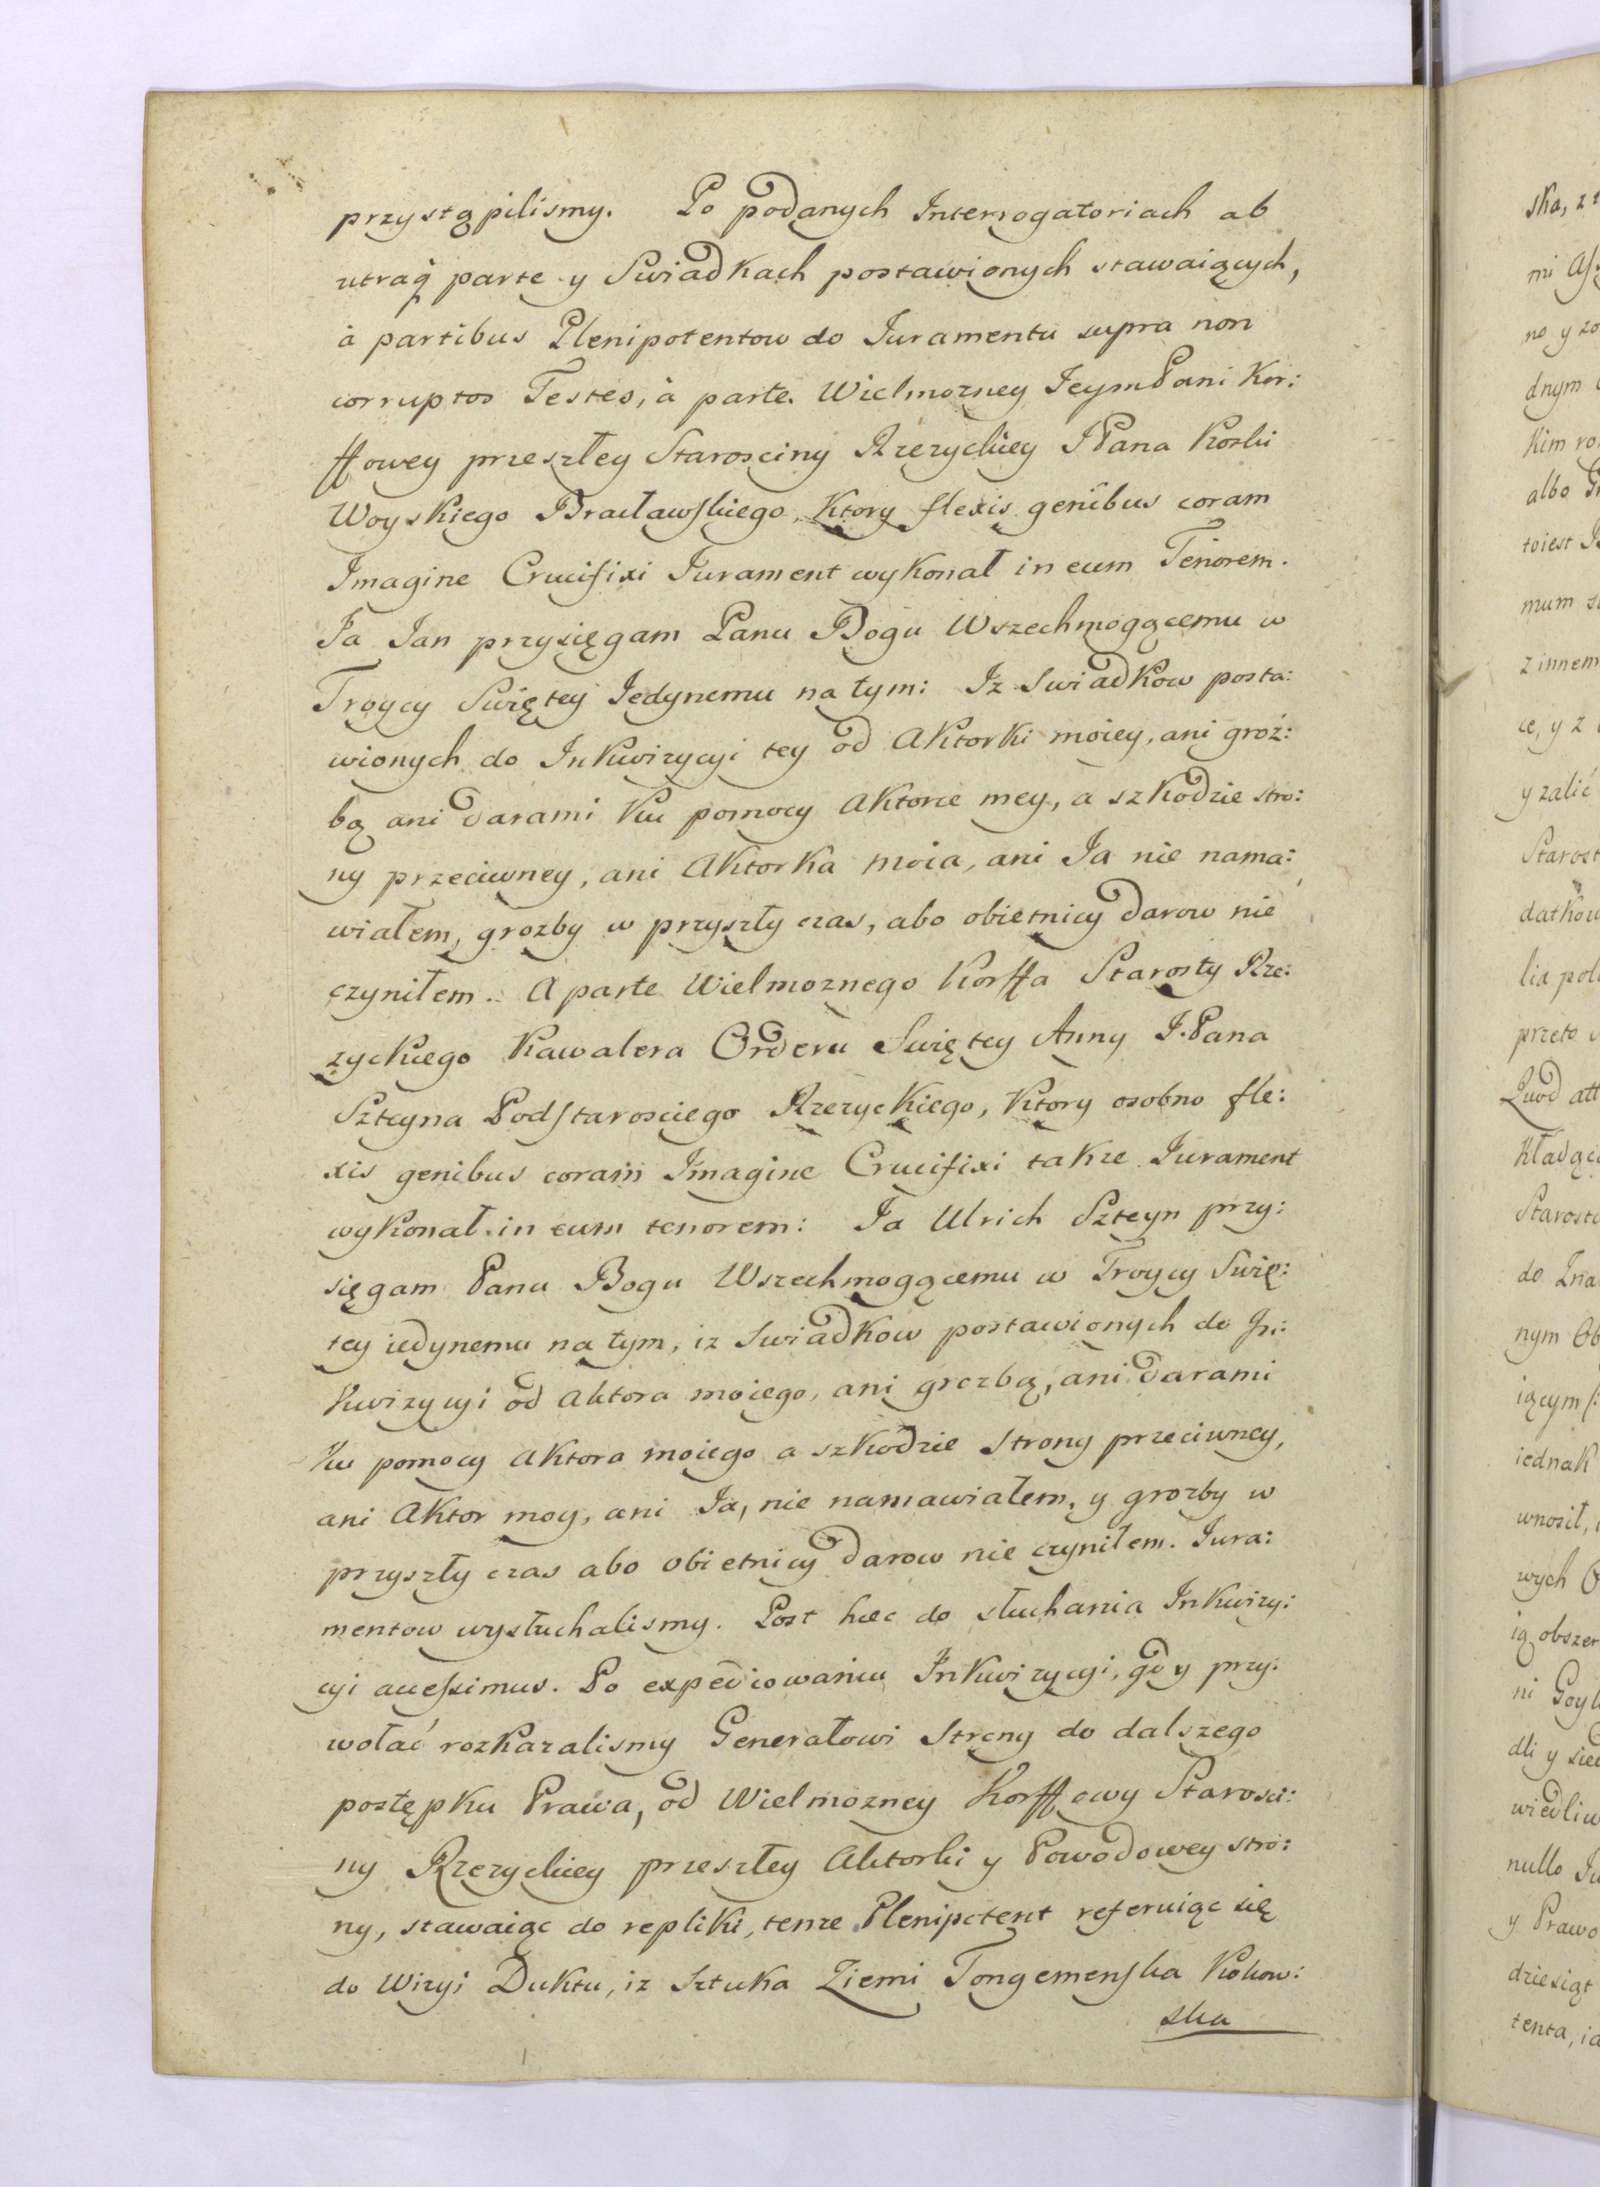 przystąpilismy. Po podanych Interrogatoriach ab
utraq parte y Swiadkach postawionych stawaiących,
à partibus Plenipotentow do Juramentu supra non
corruptos Testes, à parte Wielmozney JeymPani Kor:
ffowey przeszłey Starosciny Rzezyckiey JPana Koski
Woyskiego Bracławskiego, Ktory flexis genibus coram
Imagine Crucifixi Jurament wykonał in eum Tenorem.
Ja Jan przysięgam Panu Bogu Wszechmogącemu w
Troycy Swiętey Jedynemu na tym: Iz Swiadkow posta:
wionych do Inkwizycyi tey od Aktorki moiey, ani groź:
bą ani darami Ku pomocy Aktorce mey, a szkodzie stro:
ny przeciwney, ani Aktorka moia, ani Ja nie nama:
wiałem, grozby w przyszły czas, abo obietnicy darow nie
czyniłem. A parte Wielmoznego Korffa Starosty Rze:
zyckiego Kawalera Orderu Swiętey Anny J.Pana
Szteyna Podstarosciego Rzezyckiego, Ktory osobno fle:
xis genibus coram Imagine Crucifixi takze Jurament
wykonał in eum tenorem: Ja Ulrich Szteyn przy:
sięgam Panu Bogu Wszechmogącemu w Troycy Swię:
tey iedynemu na tym, iz Swiadkow postawionych do In:
kwizycyi od Aktora moiego, ani grozbą, ani darami
Ku pomocy Aktora moiego a szkodzie strony przeciwney,
ani Aktor moy, ani Ja, nie namawiałem, y grozby w
przyszły czas abo obietnicy darow nie czyniłem. Jura:
mentow wysłuchalismy. Post hæc do słuchania Inkwizy:
cyi accessimus. Po expediowaniu Inkwizycyi, gdy przy:
wołać rozkazalismy Generałowi Strony do dalszego
postępku Prawa, od Wielmozney Korffowy Starosci:
ny Rzezyckiey przeszłey Aktorki y Powodowey stro:
ny, stawaiąc do repliki, tenze Plenipotent referuiąc się
do Wizyi Duktu, iz Sztuka Ziemi Tongemenska Kokow:
ska